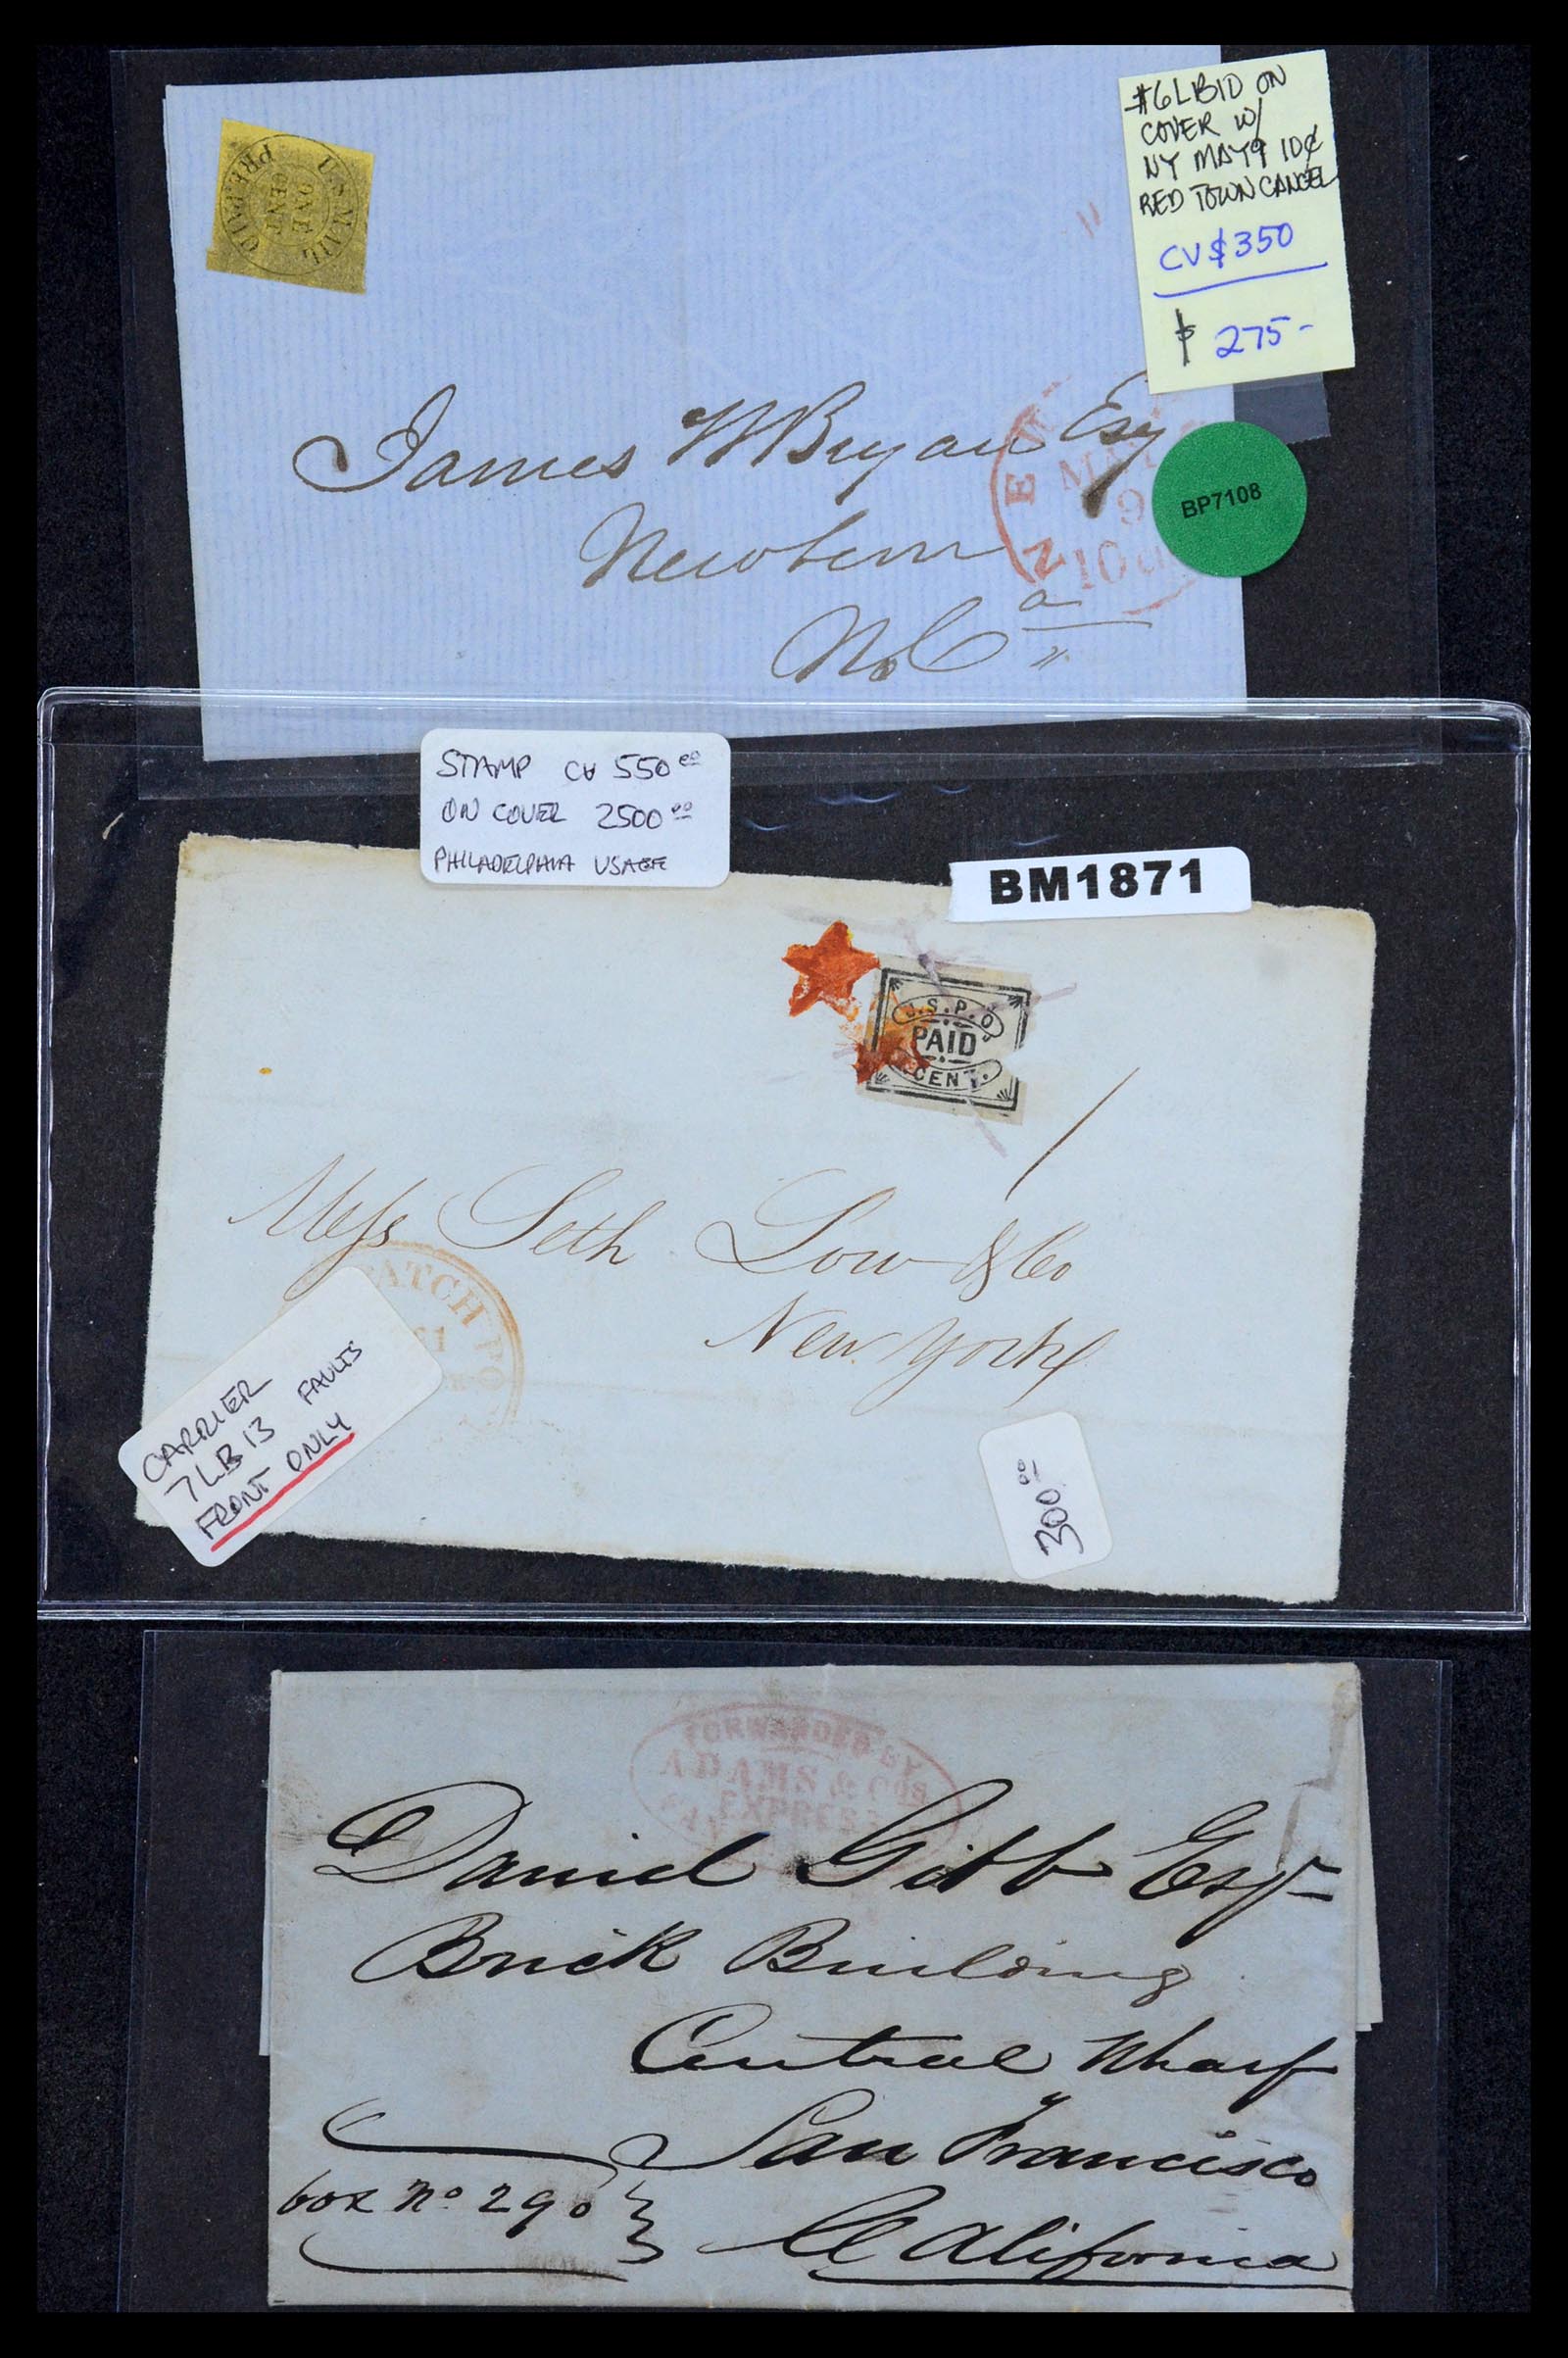 #6LB10 ON
COVER W/
NY MAY 9 10¢
RED TOWN CANCEL
CV $350
$ 275-
U.S. MAIL
ONE
CENT
PRE-PAID
James W Bryan Esq
Newbern
No Ca
NEW
MAY
9
10
BP7108
STAMP CV 550.00
ON COVER 2500.00
PHILADELPHIA USAGE
BM1871
U.S.P.O
PAID
CENT.
Mess Seth Low & Co
New York
ATCH PO
CARRIER
7LB13 FAULTS
FRONT ONLY
300.00
FORWARDED BY
ADAMS & Cos
EXPRESS
Daniel Gibb Esqr
Brick Building
Central Wharf
San Francisco
box No 290
California